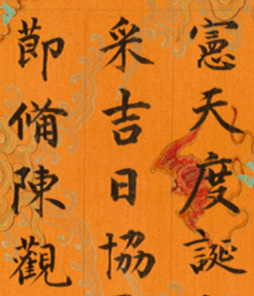 憲天度誕
采吉日協
節備陳觀